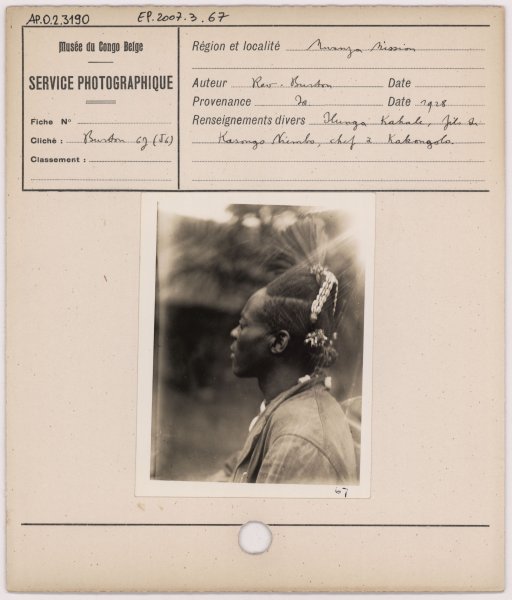 AP.0.2.3190
EP.2007.3.67
Musée du Congo Belge
SERVICE PHOTOGRAPHIQUE
Fiche N°
Cliché : Burton 67 (S6)
Classement :
Région et localité Mwanza Mission
Auteur Rev. Burton Date
Provenance Id. Date 1928
Renseignements divers Ilunga Kahale, fils de
Kasongo Niembo, chef à Kakongolo.
67